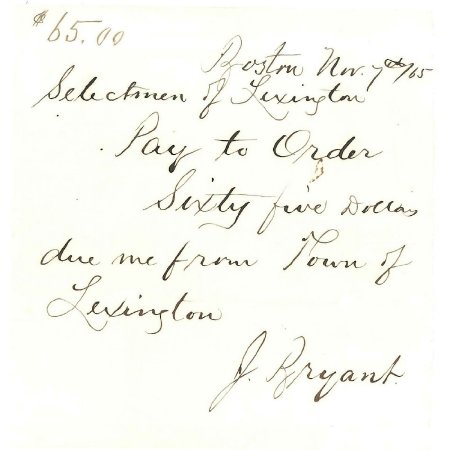 $65.00
Boston Nov. 7th/65
Selectmen of Lexington
Pay to Order
Sixty five Dollars
due me from Town of
Lexington
J. Bryant.